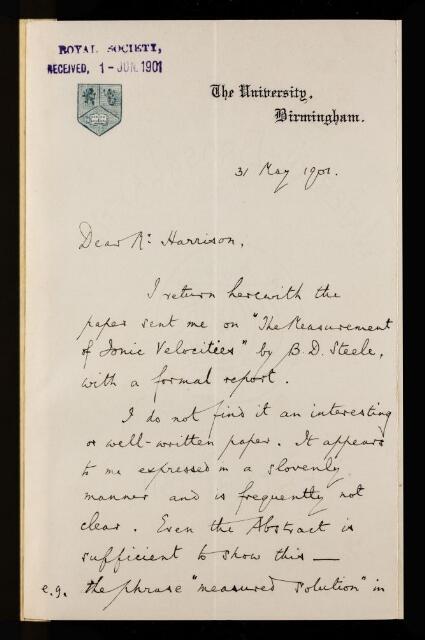 ROYAL SOCIETY,
RECEIVED, 1-JUN.1901
The University,
Birmingham.
31 May 1901.
Dear Mr. Harrison,
I return herewith the
paper sent me on "The Measurement
of Ionic Velocities" by B. D. Steele,
with a formal report.
I do not find it an interesting
or well-written paper. It appears
to me expressed in a slovenly
manner and is frequently not
clear. Even the Abstract is
sufficient to show this —
e.g. the phrase "measured solution" in